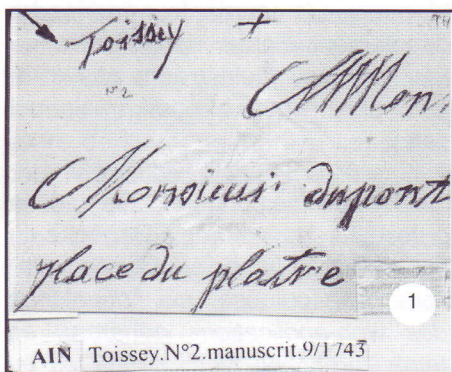 Toissey +
N° 2
Monsieur dupont
place du platre
1
AIN Toissey.N°2.manuscrit.9/1743